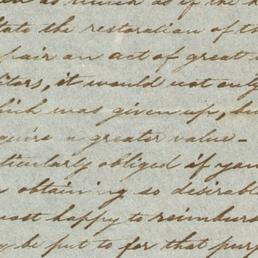 as much as if the
tate the restoration of th
pair an act of great
ditors, it would not only
hich was given up, bu
quire a greater value-
ticularly obliged if you
obtaining so desirabl
most happy to reimburs
y be put to for that purp